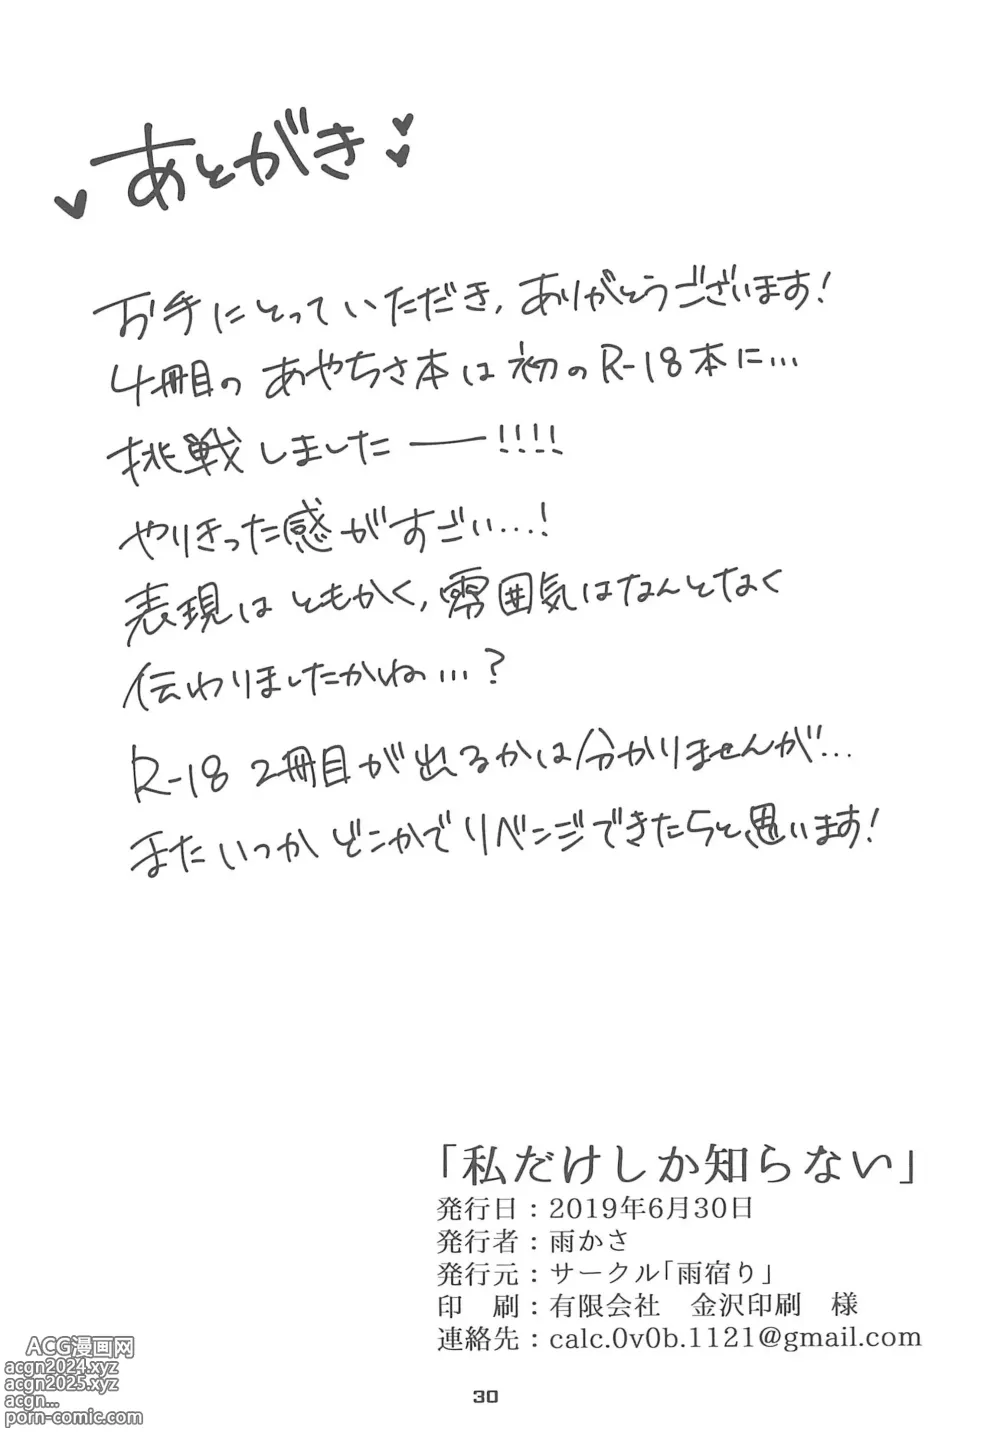 あとがき
お手にとっていただき、ありがとうございます!
4冊目の あやちさ本は 初の R-18本に…
挑戦しましたー!!!!
やりきった感がすごい…!
表現は ともかく、雰囲気はなんとなく
伝わりましたかね…?
R-18 2冊目が出るかは分かりませんが…
またいつか どこかで リベンジできたらと思います!
「私だけしか知らない」
発行日：2019年6月30日
発行者：雨かさ
発行元：サークル「雨宿り」
印　刷：有限会社　金沢印刷　様
連絡先：calc.0v0b.1121@gmail.com
ACG漫画网
acgn2024.xyz
acgn2025.xyz
acgn...
porn-comic.com
30